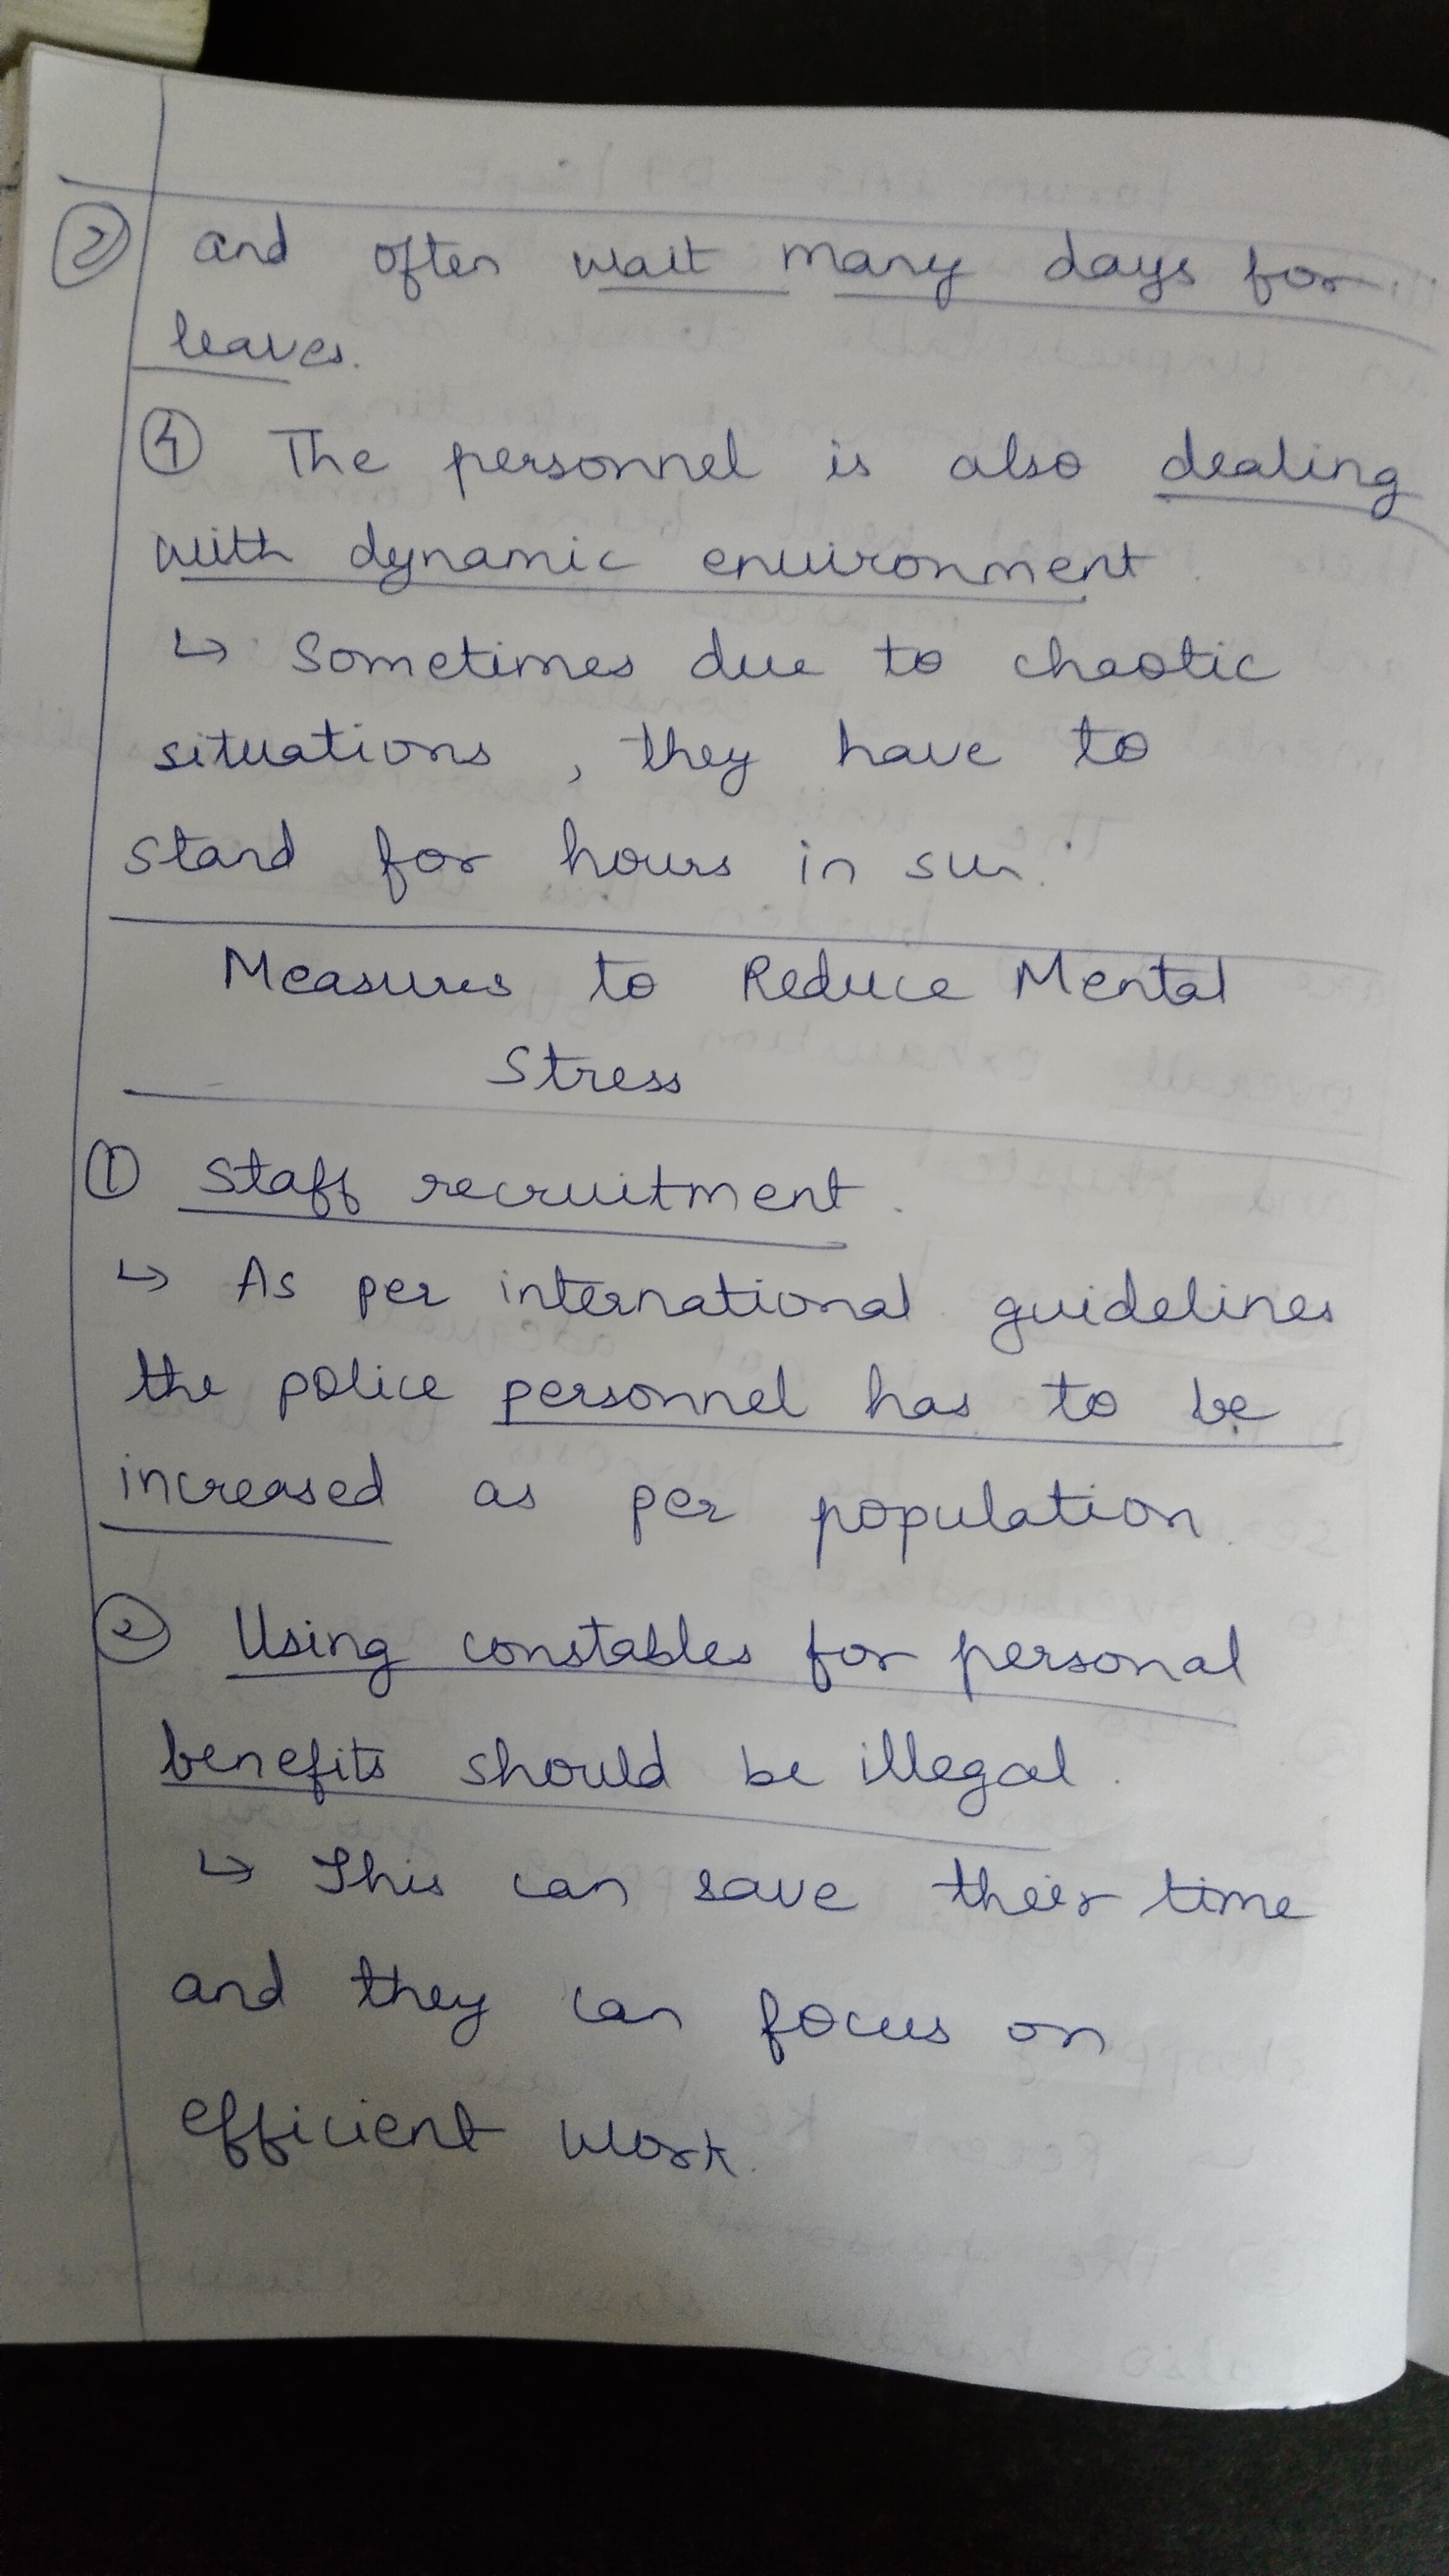 ② and often wait many days for
leaves.
④ The personnel is also dealing
with dynamic environment.
↳ Sometimes due to chaotic
situations, they have to
stand for hours in sun.
Measures to Reduce Mental
Stress
① Staff recruitment.
↳ As per international guidelines
the police personnel has to be
increased as per population.
② Using constables for personal
benefits should be illegal.
↳ This can save their time
and they can focus on
efficient work.